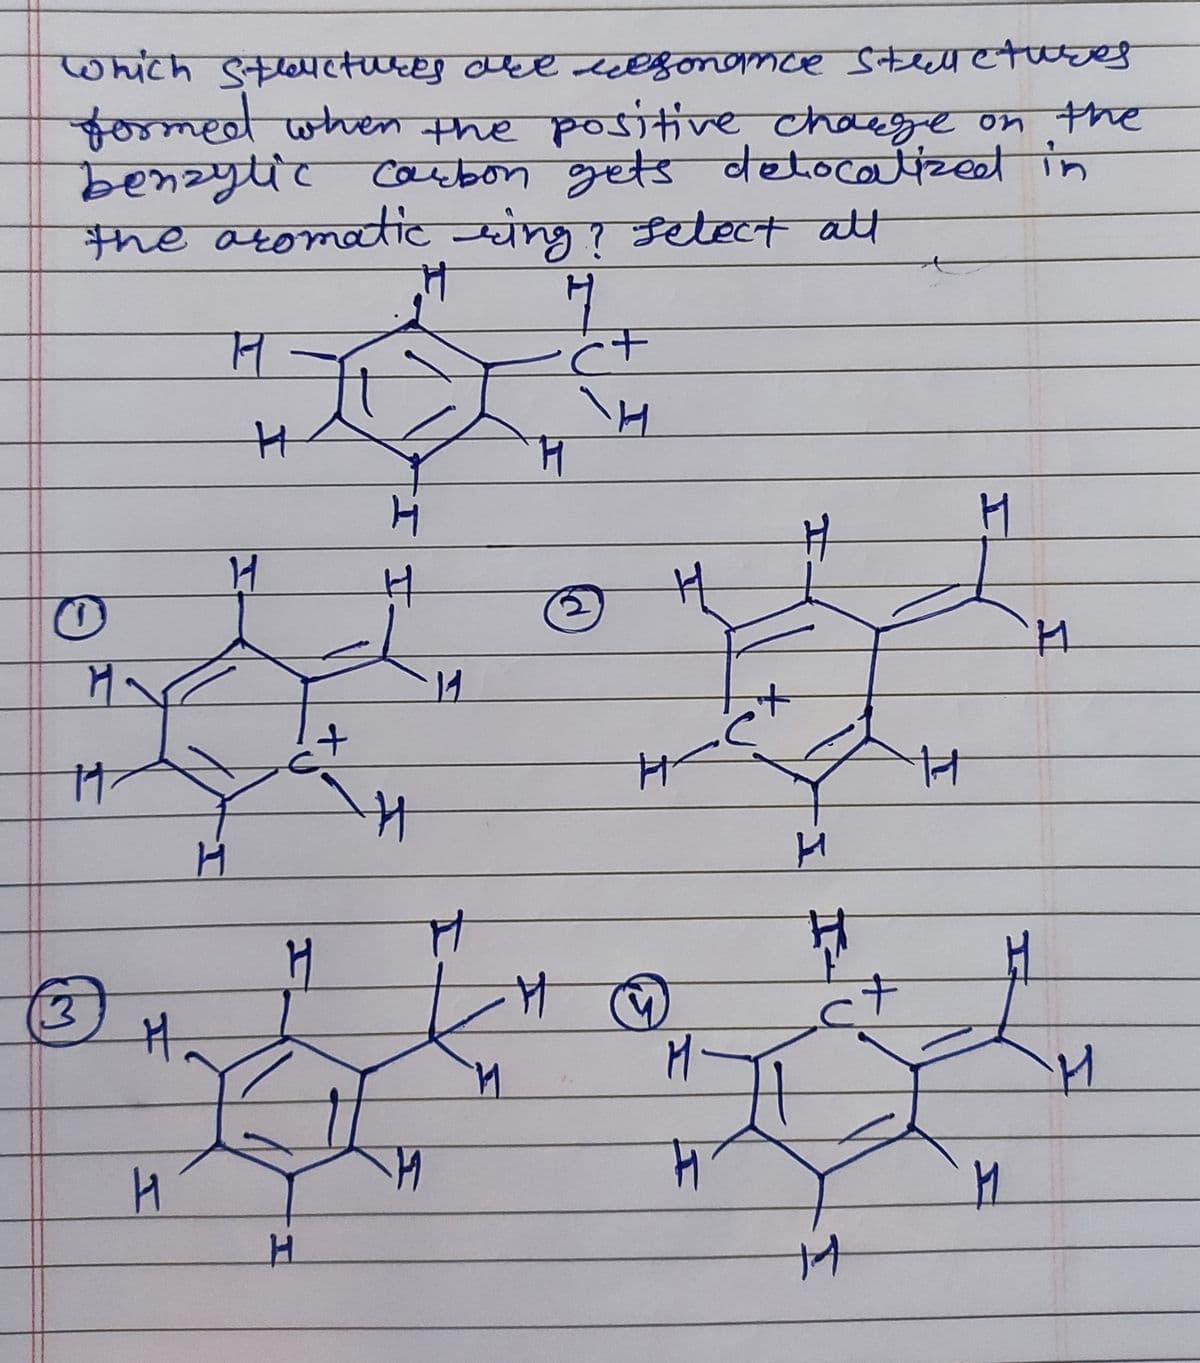 which structures are resonance structures
formed when the positive charge on the
benzylic carbon gets delocalized in
the aromatic ring? select all
H H
H C+
H H
H
H
① H H ② H H H
H H H
C+ C+
H H H H
H H
③ H H H ④ H H
H C+
H H H H
H H H H
H H